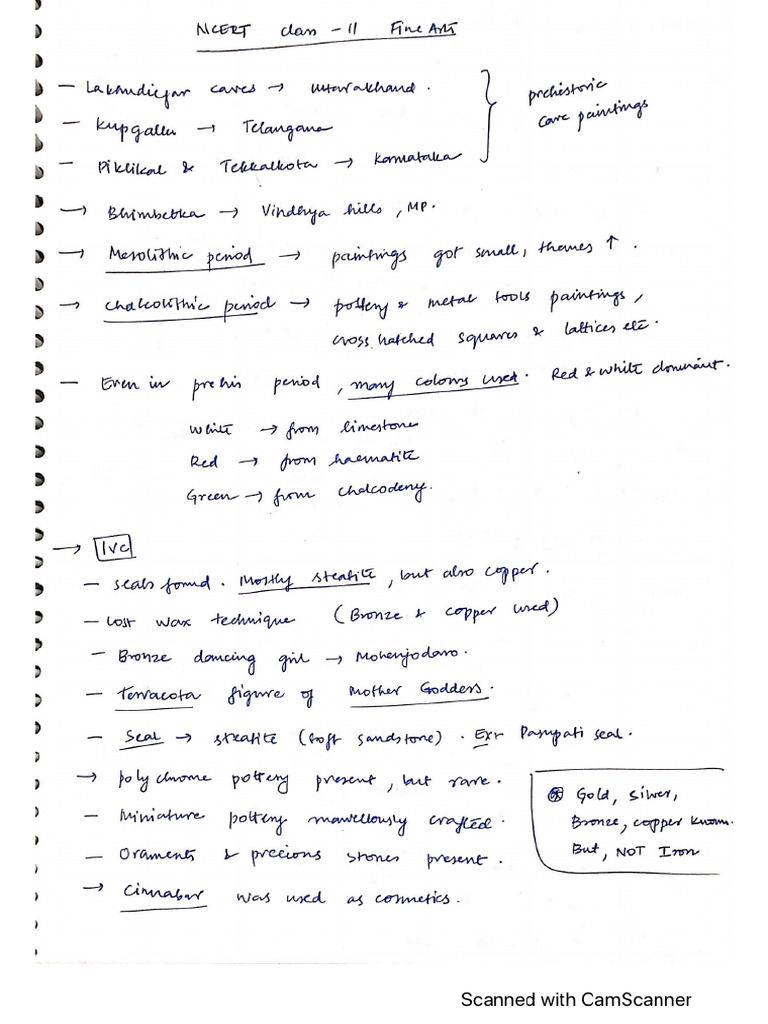 NCERT class - 11 Fine Art
- Lakhudiyar caves → Uttarakhand.
- Kupgallu → Telangana
- Piklikal & Tekkalkota → Karnataka
prehistoric
cave paintings
→ Bhimbetka → Vindhya hills, MP.
→ Mesolithic period → paintings got small, themes ↑.
→ Chalcolithic period → pottery & metal tools paintings,
cross hatched squares & lattices etc.
- Even in prehis period, many colours used. Red & white dominant.
White → from limestone
Red → from haematite
Green → from chalcodeny.
→ IVC
- seals found. Mostly steatite, but also copper.
- Lost wax technique (Bronze & copper used)
- Bronze dancing girl → Mohenjodaro.
- Terracota figure of Mother Goddess.
- Seal → steatite (soft sandstone). Ex: Pasupati seal.
→ polychrome pottery present, but rare.
- Miniature pottery marvellously crafted.
- Oraments & precious stones present.
→ Cinnabar was used as cosmetics.
Gold, silver,
Bronze, copper known.
But, NOT Iron
Scanned with CamScanner